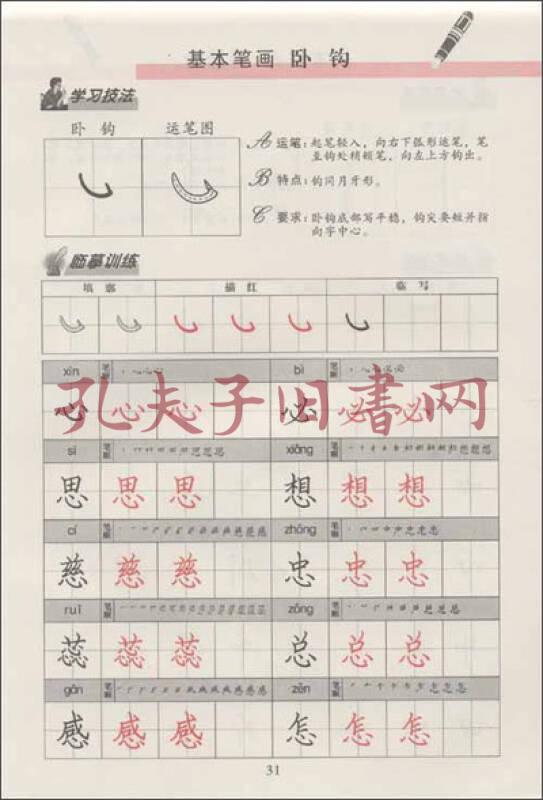 基本笔画 卧 钩
学习技法
卧 钩 运笔图
A 运笔：起笔轻入，向右下弧形运笔，笔
至钩处稍顿笔，向左上方钩出。
B 特点：钩同月牙形。
C 要求：卧钩底部写平稳，钩尖要短并指
向字中心。
临摹训练
填 廓 描 红 临 写
xīn 笔顺 bì 笔顺
心 心 心 必 必 必
孔夫子旧书网
sī 笔顺 xiǎng 笔顺
思 思 思 想 想 想
cí 笔顺 zhōng 笔顺
慈 慈 慈 忠 忠 忠
ruǐ 笔顺 zǒng 笔顺
蕊 蕊 蕊 总 总 总
gǎn 笔顺 zěn 笔顺
感 感 感 怎 怎 怎
31